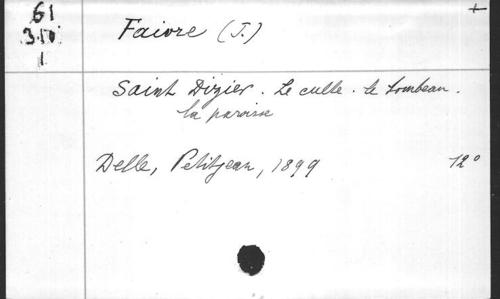 61
3.50
1
+
Faivre (J.)
Saint Dizier. Le culte. le tombeau.
la paroisse
Delle, Petitjean, 1899 12°